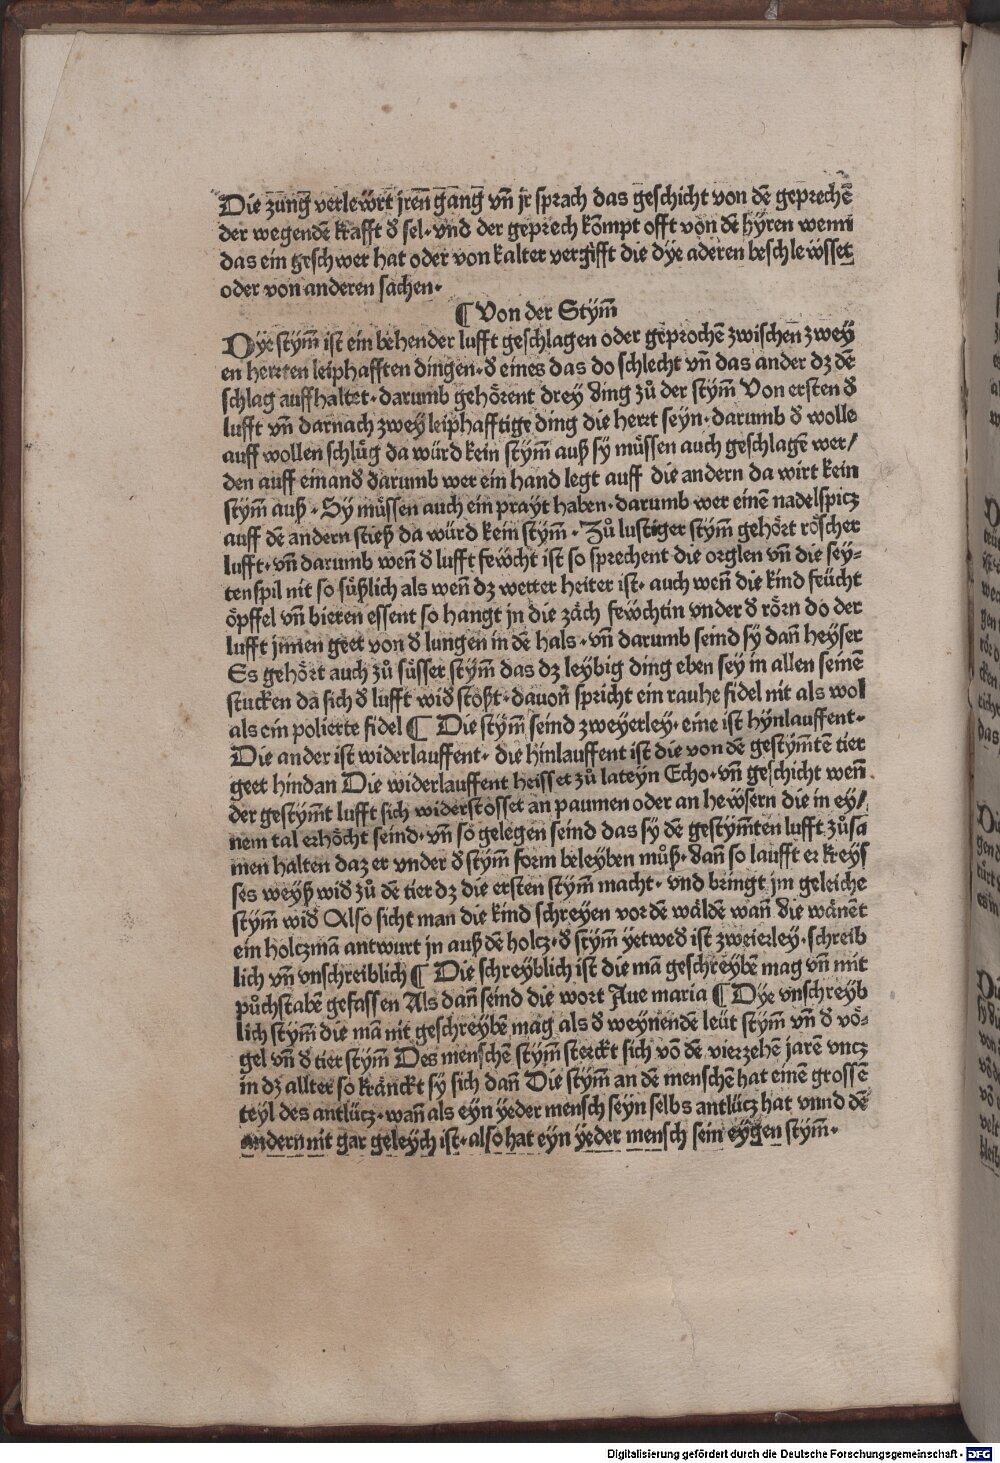 Die zūnḡ verlewrt jren̄ gānḡ vn̄ jr sprach das geschicht von dē geprechē
der wegendē krafft d̕ sel· vnd der geprech kōmpt offt von dē hyren wenn
das ein geschwer hat oder von kalter vergifft die dÿe aderen beschlewsset
oder von anderen sachen·
¶ Von der Stym̄
DYe stym̄ ist ein behender lufft geschlagen oder geprochē zwischen zweÿ
en herrten leiphafften dingen· d̕ eines das do schlecht vn̄ das ander dz dē
schlag auffhaltet· darumb gehörent dreÿ ding zů der stym̄ Von ersten d̕
lufft vn̄ darnach zweÿ leiphafftige ding die hert seyn· darumb d̕ wolle
auff wollen schlüg da würd kein stym̄ auß sÿ müssen auch geschlagē wer/
den auff einand̕ darumb wer ein hand legt auff die andern da wirt kein
stym̄ auß· Sÿ müssen auch ein prayt haben· darumb wer einē nadelspicz
auff dē andern stieß da würd kein stym̄· Zů lustiger stym̄ gehört röscher
lufft· vn̄ darumb wen̄ d̕ lufft fewcht ist so sprechent die orglen vn̄ die sey⸗
tenspil nit so süßlich als wen̄ dz wetter heiter ist· auch wen̄ die kind feücht
öpffel vn̄ bieren essent so hangt jn die zäch fewchtin vnder d̕ rörn do der
lufft jnnen geet von d̕ lungen in dē hals· vn̄ darumb seind sÿ dan̄ heyser
Es gehört auch zů süsser stym̄ das dz leybig ding eben sey in allen seinē
stucken da sich d̕ lufft wid̕ stößt· davon̄ spricht ein rauhe fidel nit als wol
als ein polierte fidel ¶ Die stym̄ seind zweyerley· eine ist hynlauffent·
Die ander ist widerlauffent· die hinlauffent ist die von dē gestymtē tier
geet hindan Die widerlauffent heisset zů lateyn Echo· vn̄ geschicht wen̄
der gestym̄t lufft sich widerstosset an paumen oder an hewsern die in ey/
nem tal erhöcht seind· vn̄ so gelegen seind das sÿ dē gestym̄ten lufft zůsa
men halten daz er vnder d̕ stym̄ form beleyben můß· dan̄ so laufft er kreyß
ses weyß wid̕ zů dē tier dz die ersten stym̄ macht· vnd bringt jm geleiche
stym̄ wid̕ Also sicht man die kind schreyen vor dē wäldē wan̄ die wänēt
ein holczmā antwurt jn auß dē holcz· d̕ stym̄ ÿetwed̕ ist zweierley· schreib
lich vn̄ vnschreiblich ¶ Die schreyblich ist die mā geschreybē mag vn̄ mit
půchstabē gefassen Als dan̄ seind die wort Aue maria ¶ Dÿe vnschreyb
lich stym̄ die mā nit geschreybē mag als d̕ weynendē leüt stym̄ vn̄ d̕ vö⸗
gel vn̄ d̕ tier stym̄ Des menschē stym̄ sterckt sich vō dē vierzehē jarē vncz
in dz allter so kränckt sÿ sich dan̄ Die stym̄ an dē menschē hat einē grossē
teyl des antlücz· wan̄ als eyn ÿeder mensch seyn selbs antlücz hat vnnd dē
andern nit gar geleych ist· also hat eyn ÿeder mensch sein eygen stym̄·
Digitalisierung gefördert durch die Deutsche Forschungsgemeinschaft - DFG